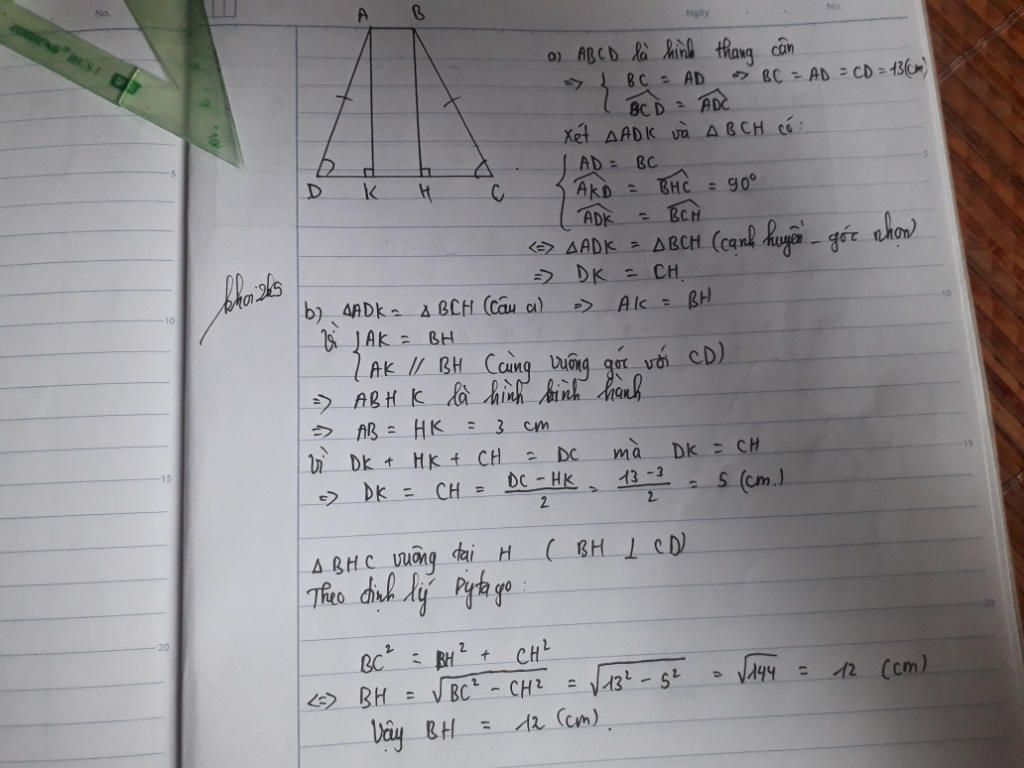 No.
Ngày
No.
A B
D K H C
a) ABCD là hình thang cân
=> { BC = AD => BC = AD = CD = 13(cm)
\widehat{BCD} = \widehat{ADC}
Xét △ADK và △BCH có:
{ AD = BC
\widehat{AKD} = \widehat{BHC} = 90°
\widehat{ADK} = \widehat{BCH}
<=> △ADK = △BCH (cạnh huyền - góc nhọn)
=> DK = CH.
b) △ADK = △BCH (câu a) => AK = BH
Vì { AK = BH
AK // BH (cùng vuông góc với CD)
=> ABHK là hình bình hành
=> AB = HK = 3 cm
Vì DK + HK + CH = DC mà DK = CH
=> DK = CH = \frac{DC - HK}{2} = \frac{13 - 3}{2} = 5 (cm.)
△BHC vuông tại H ( BH ⊥ CD)
Theo định lý Pytago:
BC² = BH² + CH²
<=> BH = √(BC² - CH²) = √(13² - 5²) = √144 = 12 (cm)
Vậy BH = 12 (cm).
5
10
15
20
5
10
15
20